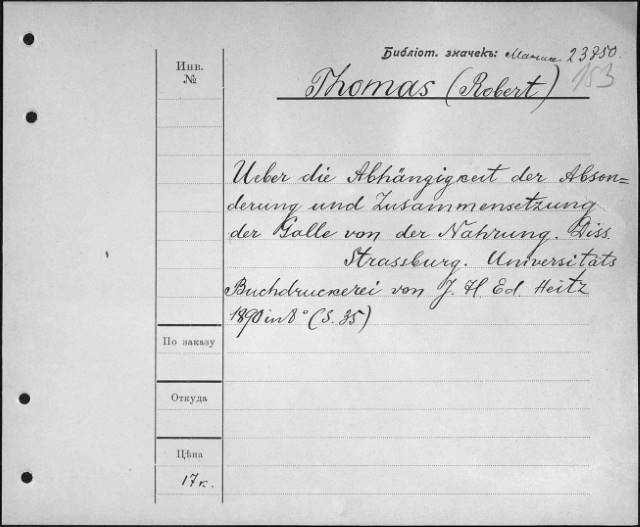 Библіот. значекъ: 23750.
153
Инв.
№
Thomas (Robert)
Ueber die Abhängigkeit der Abson=
derung und Zusammensetzung
der Galle von der Nahrung. Diss.
Strassburg. Universitäts
Buchdruckerei von J. H. Ed. Heitz
1890 in 8° (S. 35)
По заказу
Откуда
Цѣна
17к.